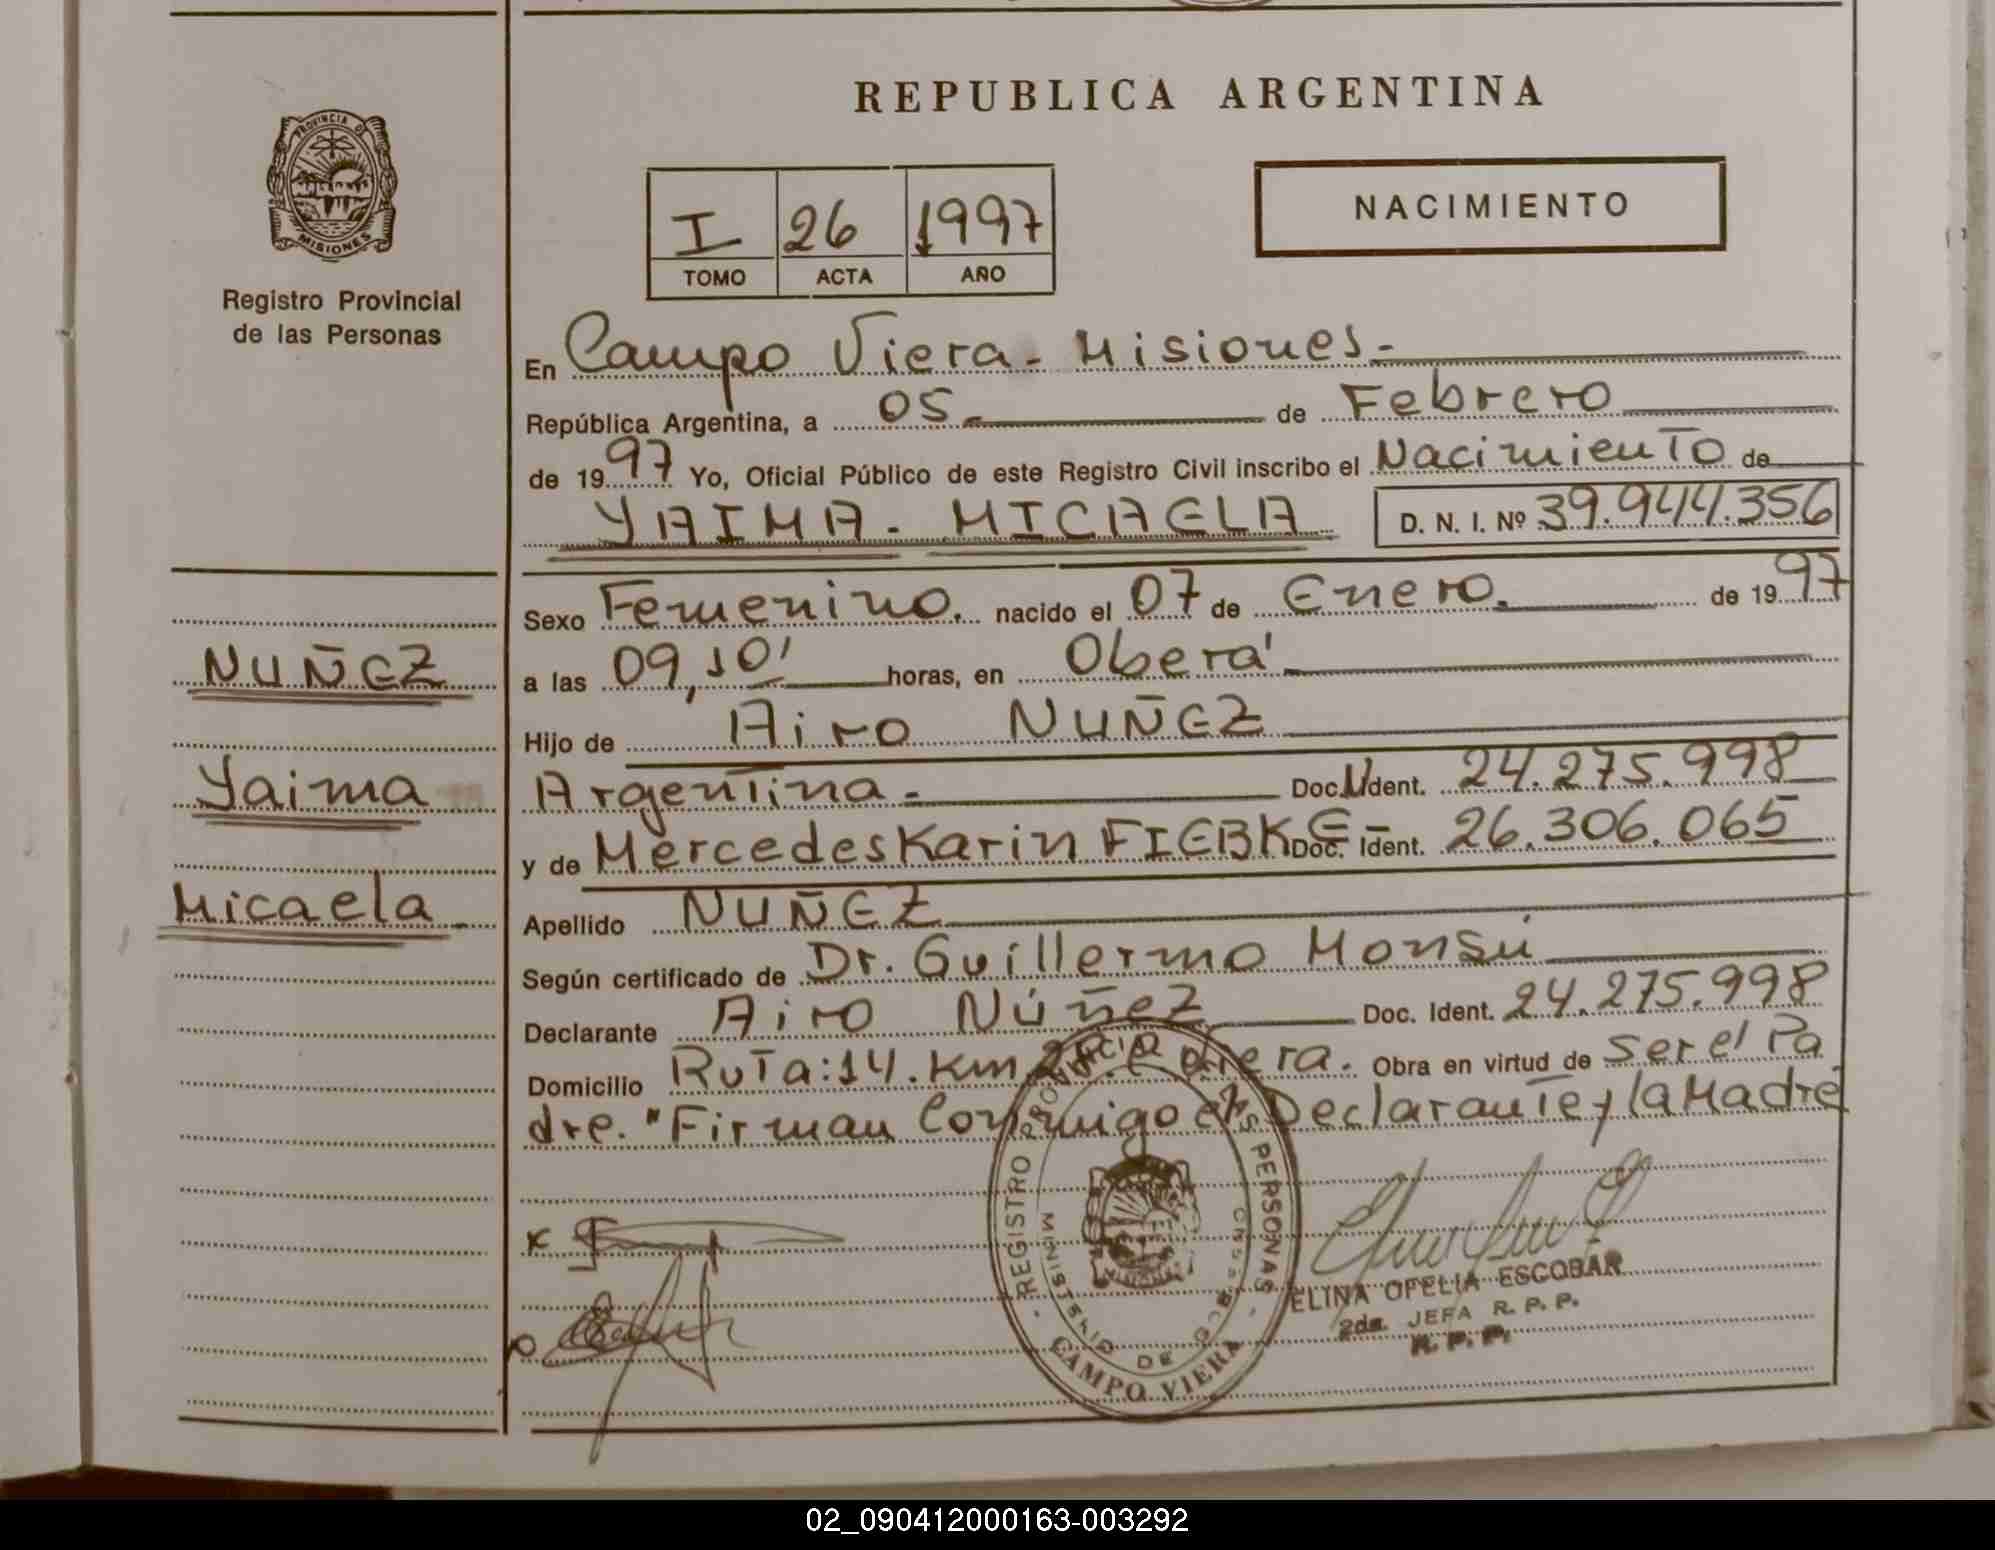 REPUBLICA ARGENTINA
PROVINCIA DE
MISIONES
Registro Provincial
de las Personas
I 26 1997
TOMO ACTA AÑO
NACIMIENTO
En Campo Viera - Misiones.-
República Argentina, a 05 de Febrero
de 1997 Yo, Oficial Público de este Registro Civil inscribo el Nacimiento de
YAIMA - MICAELA D. N. I. Nº 39.944.356
Sexo Femenino. nacido el 07 de Enero. de 1997
NUÑEZ
a las 09,10' horas, en Oberá
Hijo de Airo NUÑEZ
Yaima
Argentina - Doc. Ident. 24.275.998
y de Mercedes Karin FIEBKE - Doc. Ident. 26.306.065
Micaela
Apellido NUÑEZ
Según certificado de Dr. Guillermo Monsú
Declarante Airo Núñez Doc. Ident. 24.275.998
Domicilio Ruta: 14. Km Viera. Obra en virtud de ser el Pa
dre. "Firman Conmigo el Declarante y la Madre
REGISTRO PROVINCIAL LAS PERSONAS
MINISTERIO DE
MISIONES
CAMPO VIERA
ELINA OFELIA ESCOBAR
2da. JEFA R. P. P.
R. P. P.
02_090412000163-003292